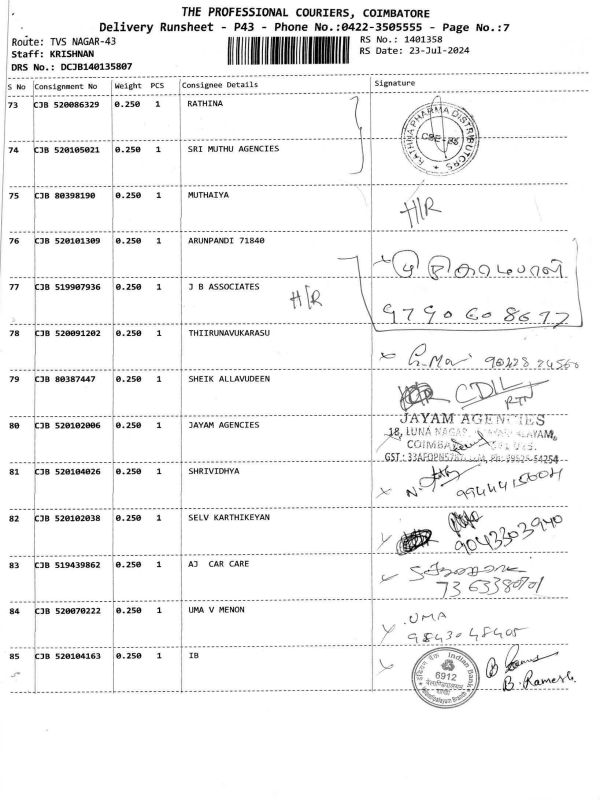 THE PROFESSIONAL COURIERS, COIMBATORE
Delivery Runsheet - P43 - Phone No.:0422-3505555 - Page No.:7
Route: TVS NAGAR-43 RS No.: 1401358
Staff: KRISHNAN RS Date: 23-Jul-2024
DRS No.: DCJB140135807
S No Consignment No Weight PCS Consignee Details Signature
73 CJB 520086329 0.250 1 RATHINA
RATHNA PHARMA DISTRIBUTORS
74 CJB 520105021 0.250 1 SRI MUTHU AGENCIES
75 CJB 80398190 0.250 1 MUTHAIYA
H/R
76 CJB 520101309 0.250 1 ARUNPANDI 71840
77 CJB 519907936 0.250 1 J B ASSOCIATES
H/R
9790608677
78 CJB 520091202 0.250 1 THIIRUNAVUKARASU
79 CJB 80387447 0.250 1 SHEIK ALLAVUDEEN
CDIL
RTN
80 CJB 520102006 0.250 1 JAYAM AGENCIES
JAYAM AGENCIES
18, LUNA NAGAR,
81 CJB 520104026 0.250 1 SHRIVIDHYA
82 CJB 520102038 0.250 1 SELV KARTHIKEYAN
9043303940
83 CJB 519439862 0.250 1 AJ CAR CARE
84 CJB 520070222 0.250 1 UMA V MENON
UMA
9843048405
85 CJB 520104163 0.250 1 IB
Indian Bank
6912
B. Ramesh